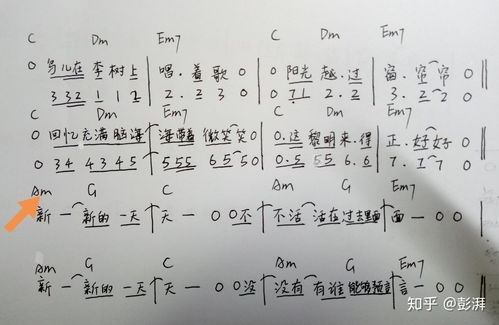 C Dm Em7 C Dm Em7
0 鸟儿在 李树上 | 唱 . 着 歌 0 | 0 阳光 越 . 过 | 窗 . 帘 帘 0 ‖
0 3 3 2 1 1 2 | 2 . 2 3 0 | 0 7 1 2 . 2 | 3 . 2 2 0 ‖
C Dm Em7 C Dm Em7
0 回忆 充满 脑海 | 海带着 微笑 笑 0 | 0 . 这 黎明 来 . 得 | 正 . 好 好 0 ‖
0 3 4 4 3 4 5 | 5 5 5 6 5 5 0 | 0 . 5 5 5 6 . 6 | 7 . 1 7 0 ‖
Am G C Am G Em7
新 一 新的 一天 | 天 一 0 0 不 | 不活 活在过去里面 | 面 一 0 0 ‖
Am G C Am G Em7
新 一 新的 一天 | 天 一 0 0 没 | 没有 有谁 能够预言 | 言 一 0 0 ‖
知乎 @彭湃